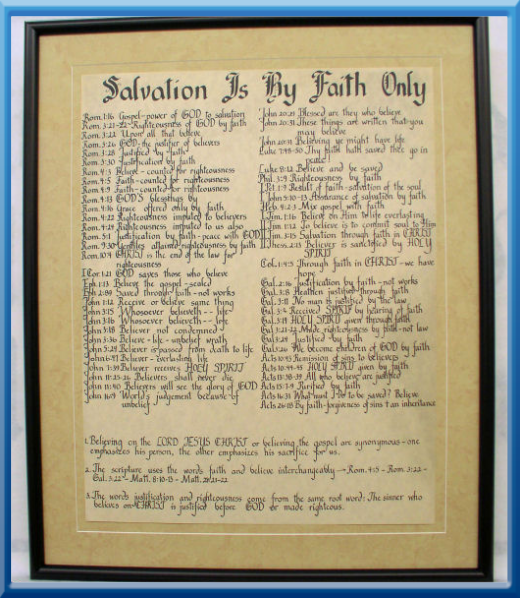 Salvation Is By Faith Only
Rom. 1:16 Gospel-power of GOD to salvation
Rom. 3:21-22 Righteousness of GOD by faith
Rom. 3:22 Upon all that believe
Rom. 3:26 GOD-the justifier of believers
Rom. 3:28 Justified by faith
Rom. 3:30 Justification by faith
Rom. 4:3 Belief - counted for righteousness
Rom. 4:5 Faith-counted for righteousness
Rom. 4:9 Faith-counted for righteousness
Rom. 4:13 GOD'S blessings by
Rom. 4:16 Grace offered only by faith
Rom. 4:22 Righteousness imputed to believers
Rom. 4:24 Righteousness imputed to us also
Rom. 5:1 Justification by faith-peace with GOD
Rom. 9:30 Gentiles attained righteousness by faith
Rom. 10:4 CHRIST is the end of the law for
righteousness
I Cor. 1:21 GOD saves those who believe
Eph. 1:13 Believe the gospel-sealed
Eph. 2:8-9 Saved through faith-not works
John 1:12 Receive or believe same thing
John 3:15 Whosoever believeth - - life
John 3:16 Whosoever believeth - - life
John 3:18 Believer not condemned
John 3:36 Believe - life - unbelief wrath
John 5:24 Believer is passed from death to life
John 6:47 Believer - everlasting life
John 7:39 Believer receives HOLY SPIRIT
John 11:25-26 Believers shall never die
John 11:40 Believers will see the glory of GOD
John 16:9 World's judgement because of
unbelief
John 20:29 Blessed are they who believe
John 20:31 These things are written that you
may believe
John 20:31 Believing ye might have life
Luke 7:48-50 Thy faith hath saved thee go in
peace
Luke 8:12 Believe and be saved
Phil. 3:9 Righteousness by faith
I Pet. 1:9 Result of faith-salvation of the soul
I John 5:10-13 Assurance of salvation by faith
Heb. 4:2-3 Mix gospel with faith
I Tim. 1:16 Believe on Him to life everlasting
II Tim. 1:12 To believe is to commit soul to Him
II Tim. 3:15 Salvation through faith in CHRIST
II Thess. 2:13 Believer is sanctified by HOLY
SPIRIT
Col. 1:4-5 Through faith in CHRIST - we have
hope
Gal. 2:16 Justification by faith - not works
Gal. 3:8 Heathen justified through faith
Gal. 3:11 No man is justified by the law
Gal. 3:2 Received SPIRIT by hearing of faith
Gal. 3:14 HOLY SPIRIT given through faith
Gal. 3:21-22 Made righteousness by faith-not law
Gal. 3:24 Justified by faith
Gal. 3:26 We become children of GOD by faith
Acts 10:43 Remission of sins to believers
Acts 10:44-45 HOLY SPIRIT given by faith
Acts 13:38-39 All who believe are justified
Acts 15:7-9 Purified by faith
Acts 16:31 What must I do to be saved? Believe
Acts 26:18 By faith-forgiveness of sins + an inheritance
1. Believing on the LORD JESUS CHRIST or believing the gospel are synonymous - one
emphasizes his person, the other emphasizes his sacrifice for us.
2. The scripture uses the words faith and believe interchangeably → Rom. 4:5 - Rom. 3:22 -
Gal. 3:22 - Matt. 8:10-13 - Matt. 21:21-22
3. The words justification and righteousness come from the same root word: The sinner who
believes on CHRIST is justified before GOD or made righteous.